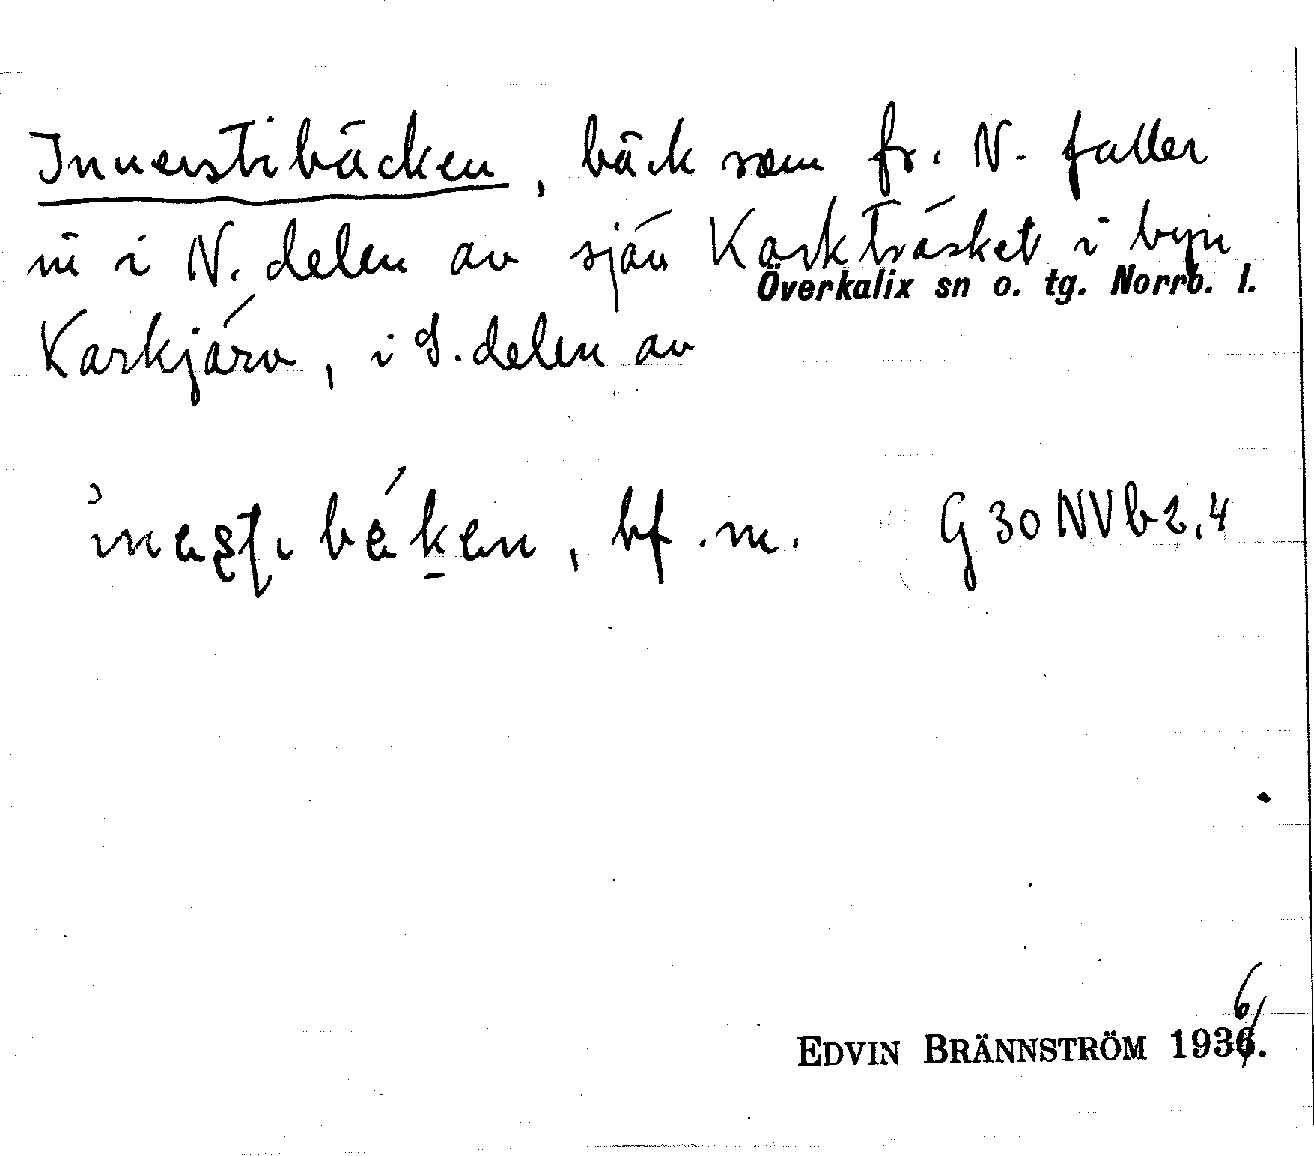 Innerstibäcken, bäck som fr. N. faller
in i N. delen av sjön Karkträsket i byn
Karkjärv, i S. delen av Överkalix sn o. tg. Norrb. l.
bf. m. G 30 NV b 2, 4
EDVIN BRÄNNSTRÖM 1936.